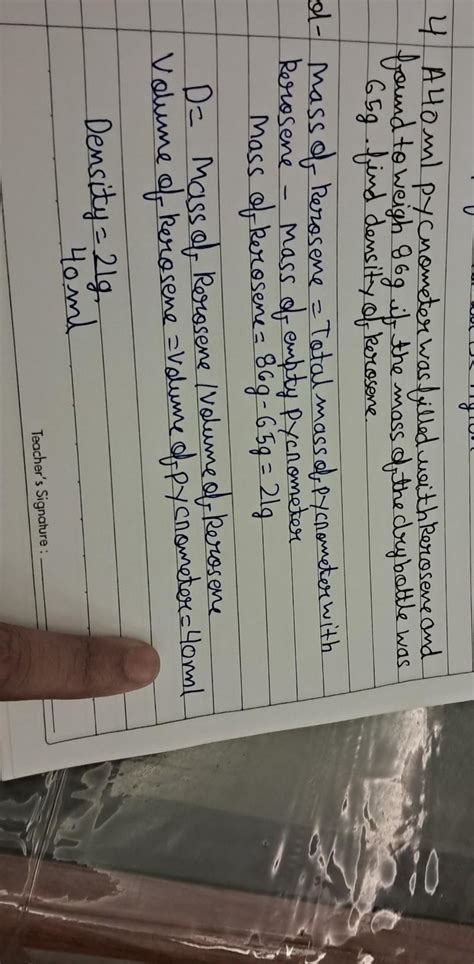 4 A 40 ml pycnometer was filled with kerosene and
found to weigh 86g if the mass of the dry bottle was
65g. find density of kerosene.
d- Mass of kerosene = Total mass of pycnometer with
kerosene - mass of empty pycnometer
Mass of kerosene = 86g - 65g = 21g
D = Mass of kerosene / Volume of kerosene
Volume of kerosene = Volume of pycnometer = 40ml
Density = 21g
40ml
Teacher's Signature :